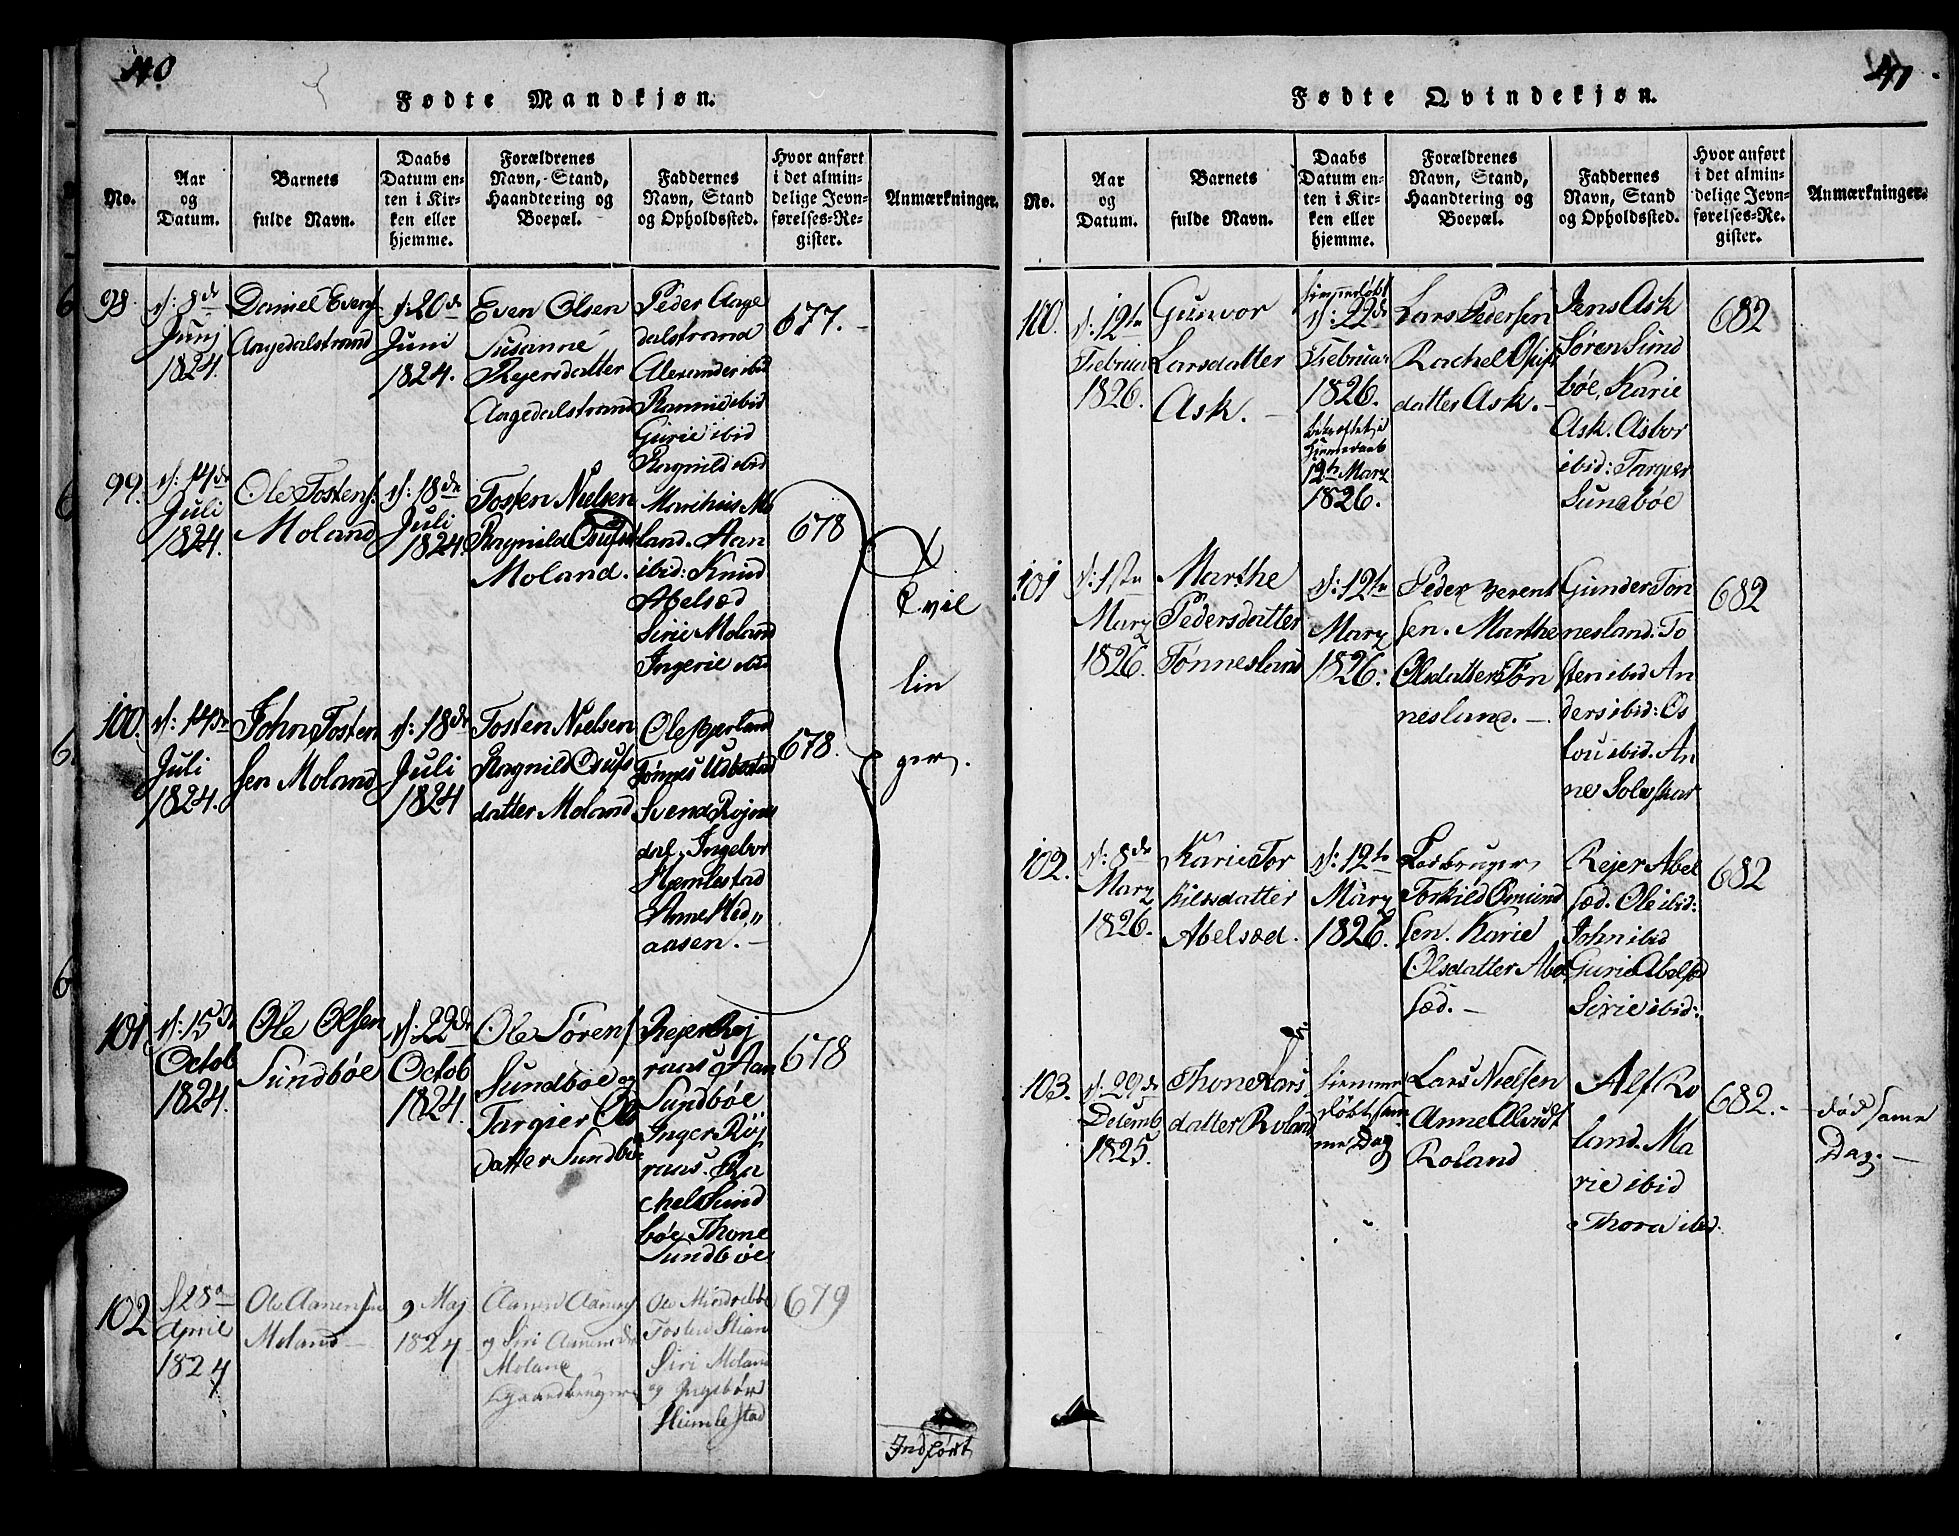 40
Fødte Mandkjøn.
No.
Aar
og
Datum.
Barnets
fulde Navn.
Daabs
Datum en-
ten i Kir-
ken eller
hjemme.
Forældrenes
Navn, Stand,
Haandtering og
Boepæl.
Faddernes
Navn, Stand
og Opholdssted.
Hvor anført
i det almin-
delige Jevn-
førelses-Re-
gister.
Anmærkninger.
98.
d: 8de
Junj
1824.
Daniel Evens
Aagedalstrand
d: 20de
Juni
1824.
Even Olsen
Susanne
Rejersdatter
Aagedalstrand
Peder Aage
dalstrand
Alexander ibid
Rannie ibid
Gurie ibid
Ragnild ibid
677.
99.
d: 14de
Juli
1824.
Ole Tostens:
Moland
d: 18de
Juli
1824.
Tosten Nielsen
Ragnild
Moland.
Mo
land. Aan
ibid: Knud
Abelsæd
Sirie Moland
Ingerie ibid
678
Tvil
lin
ger.
100.
d: 14de
Juli
1824.
John Tosten
sen Moland
d: 18de
Juli
1824
Tosten Nielsen
Ragnild Osufs
datter Moland
Ole
Tønnes
Svend Røjnes
dal, Ingebor
Hæmlestad
Anne Hed„
aasen. –
678.
101.
d: 15de
Octob
1824.
Ole Olsen
Sundbøe
d: 22de
Octob
1824.
Ole Sørens
Sundbøe og
Targier Ols
datter Sundbøe
Rejer Røj
raas, Aan
Sundbøe
Inger Røj
raas. Ra
chel Sund
bøe Thone
Sundbøe
678
102
d 28de
April
1824
Ole Aanensen
Moland –
9 Maj
1824
Aanen Aanens
og Siri Aanensdr
Moland
Gaardbruger
Ole
Tosten Stian
Siri Moland
og Ingebør
Humlestad
679
Indført
41
Fødte Qvindekjøn.
No.
Aar
og
Datum.
Barnets
fulde Navn.
Daabs
Datum en-
ten i Kir-
ken eller
hjemme.
Forældrenes
Navn, Stand,
Haandtering og
Boepæl.
Faddernes
Navn, Stand
og Opholdssted.
Hvor anført
i det almin-
delige Jevn-
førelses-Re-
gister.
Anmærkninger.
100.
d: 12te
Februar
1826.
Gunvor
Larsdatter
Ask. –
hjemmedøbt
d: 22de
Februar
1826.
bekræftet i
12te Marz
1826.
Lars Pedersen
Rachel
datter Ask. –
Jens Ask
Søren Sund
bøe, Karie
Ask. Asbor
ibid: Targier
Sundbøe
682
101
d: 1ste
Marz
1826.
Marthe
Pedersdatter
Tønnesland
d: 12te
Marz
1826.
Peder Berent
sen. Marthe
Olsdatter Tøn
nesland. –
Gunder Tøn
nesland. To
sten ibid An
ders ibid: Os
lou ibid. An
ne Solesskar
682
102.
d: 8de
Marz
1826.
Karie Tor
kildsdatter
Abelsæd.
d: 12te
Marz
1826.
Torkild Omund
sen. Karie
Olsdatter Abel
sæd. –
Rejer Abel
sæd. Ole ibid:
John ibid
Gurie Abelsæd
Sirie ibid:
682
103.
d: 29de
Decemb
1825.
Thone Lars
datter Roland
hjemme
døbt sam
me Dag
Lars Nielsen
Anne Alvsdt
Roland
Alf Ro
land. Ma
rie ibid
Thora ibid.
682. –
død samme
Dag. –